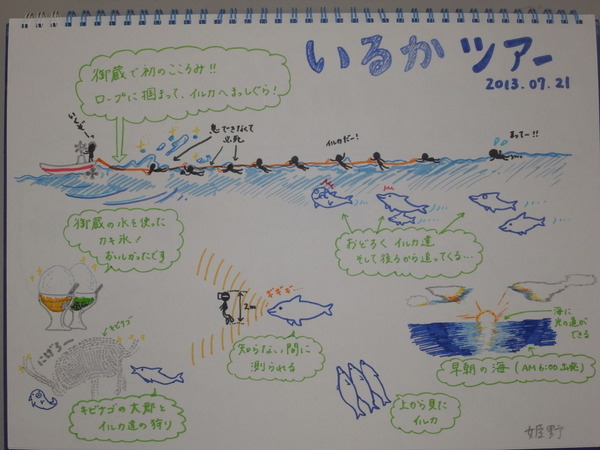 いるかツアー
2013.07.21
御蔵で初のこころみ!!
ロープに掴まって、イルカへまっしぐら!
いくぞー
息できなくて
必死
イルカだー!
まってー!!
御蔵の水を使った
カキ氷!
おいしかったです
おどろくイルカ達
そして後ろから追ってくる…
ギギギ…
2m
知らない間に
測られる
海に
光の道が
できる
早朝の海(AM6:00出発)
キビナゴ
にげろー
キビナゴの大群と
イルカ達の狩り
上から見た
イルカ
姫野